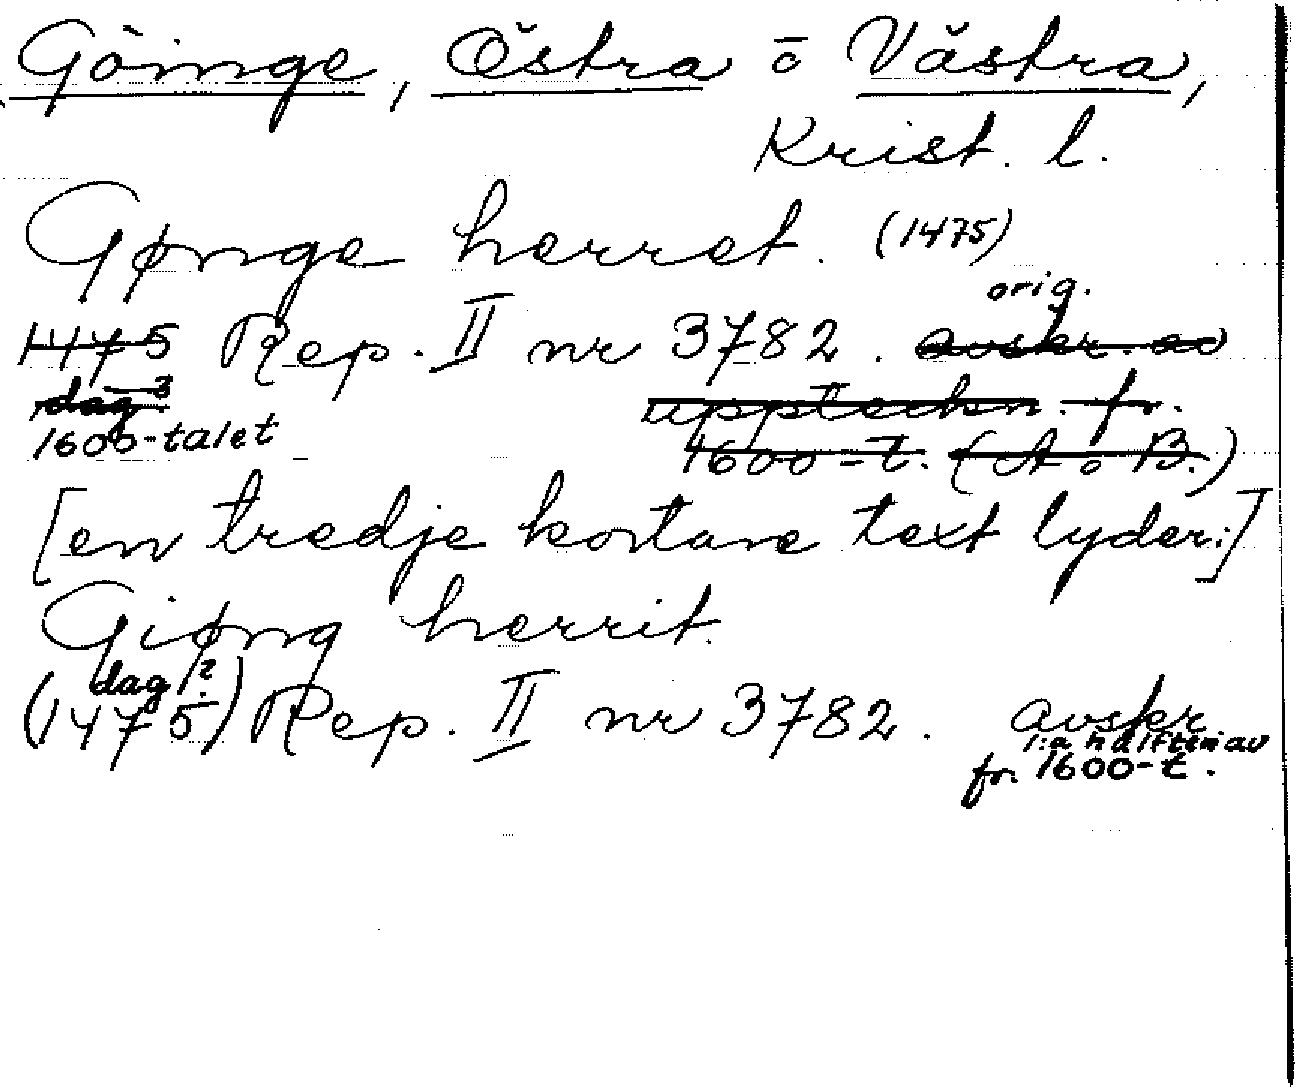 Göinge, Östra o Västra,
Krist. l.
Gønge herret. (1475)
orig.
1475 Rep. II nr 3782. avskr. av
dag ? uppteckn. fr.
1600-talet 1600-t. (A o B.)
[en tredje kortare text lyder:]
Giøng herrit.
dag ?
(1475) Rep. II nr 3782. avskr
1:a hälften av
fr. 1600-t.